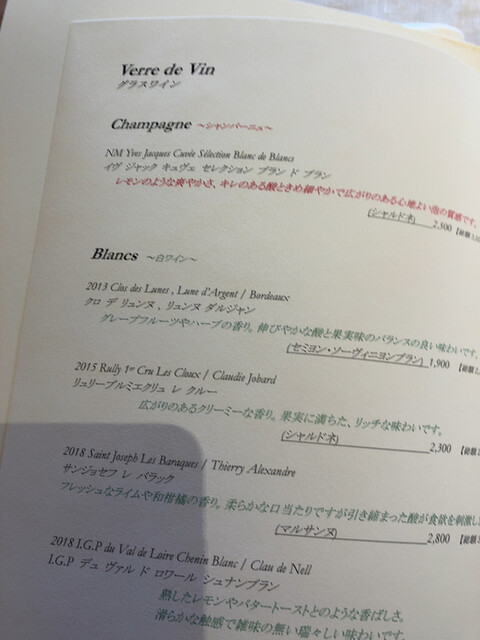 Verre de Vin
グラスワイン
Champagne ～シャンパーニュ～
NM Yves Jacques Cuvée Sélection Blanc de Blancs
イヴ ジャック キュヴェ セレクション ブラン ド ブラン
レモンのような爽やかさ、キレのある酸ときめ細やかで広がりのある心地よい泡の質感です。
(シャルドネ) 2,500 【総額
Blancs ～白ワイン～
2013 Clos des Lunes , Lune d'Argent / Bordeaux
クロ デ リュンヌ , リュンヌ ダルジャン
グレープフルーツやハーブの香り。伸びやかな酸と果実味のバランスの良い味わいです。
(セミヨン・ソーヴィニヨンブラン) 1,900 【総額
2015 Rully 1er Cru Les Cloux / Claudie Jobard
リュリープルミエクリュ レ クルー
広がりのあるクリーミーな香り。果実に満ちた、リッチな味わいです。
(シャルドネ) 2,300 【総額
2018 Saint Joseph Les Baraques / Thierry Alexandre
サンジョセフ レ バラック
フレッシュなライムや和柑橘の香り。柔らかな口当たりですが引き締まった酸が食欲を刺激し
(マルサンヌ) 2,800 【総額
2018 I.G.P du Val de Loire Chenin Blanc / Clau de Nell
I.G.P デュ ヴァル ド ロワール シュナンブラン
熟したレモンやバタートーストとのような香ばしさ。
滑らかな触感で雑味の無い瑞々しい味わいです。